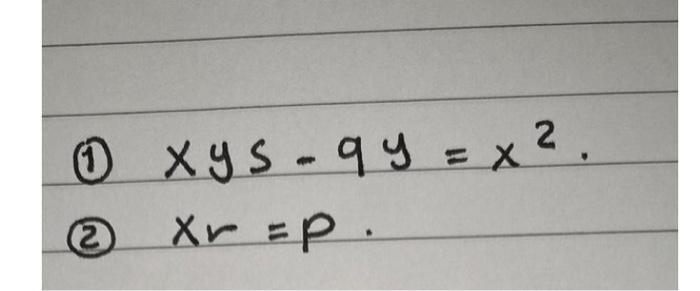 ① xys - qy = x².
② xr = p.